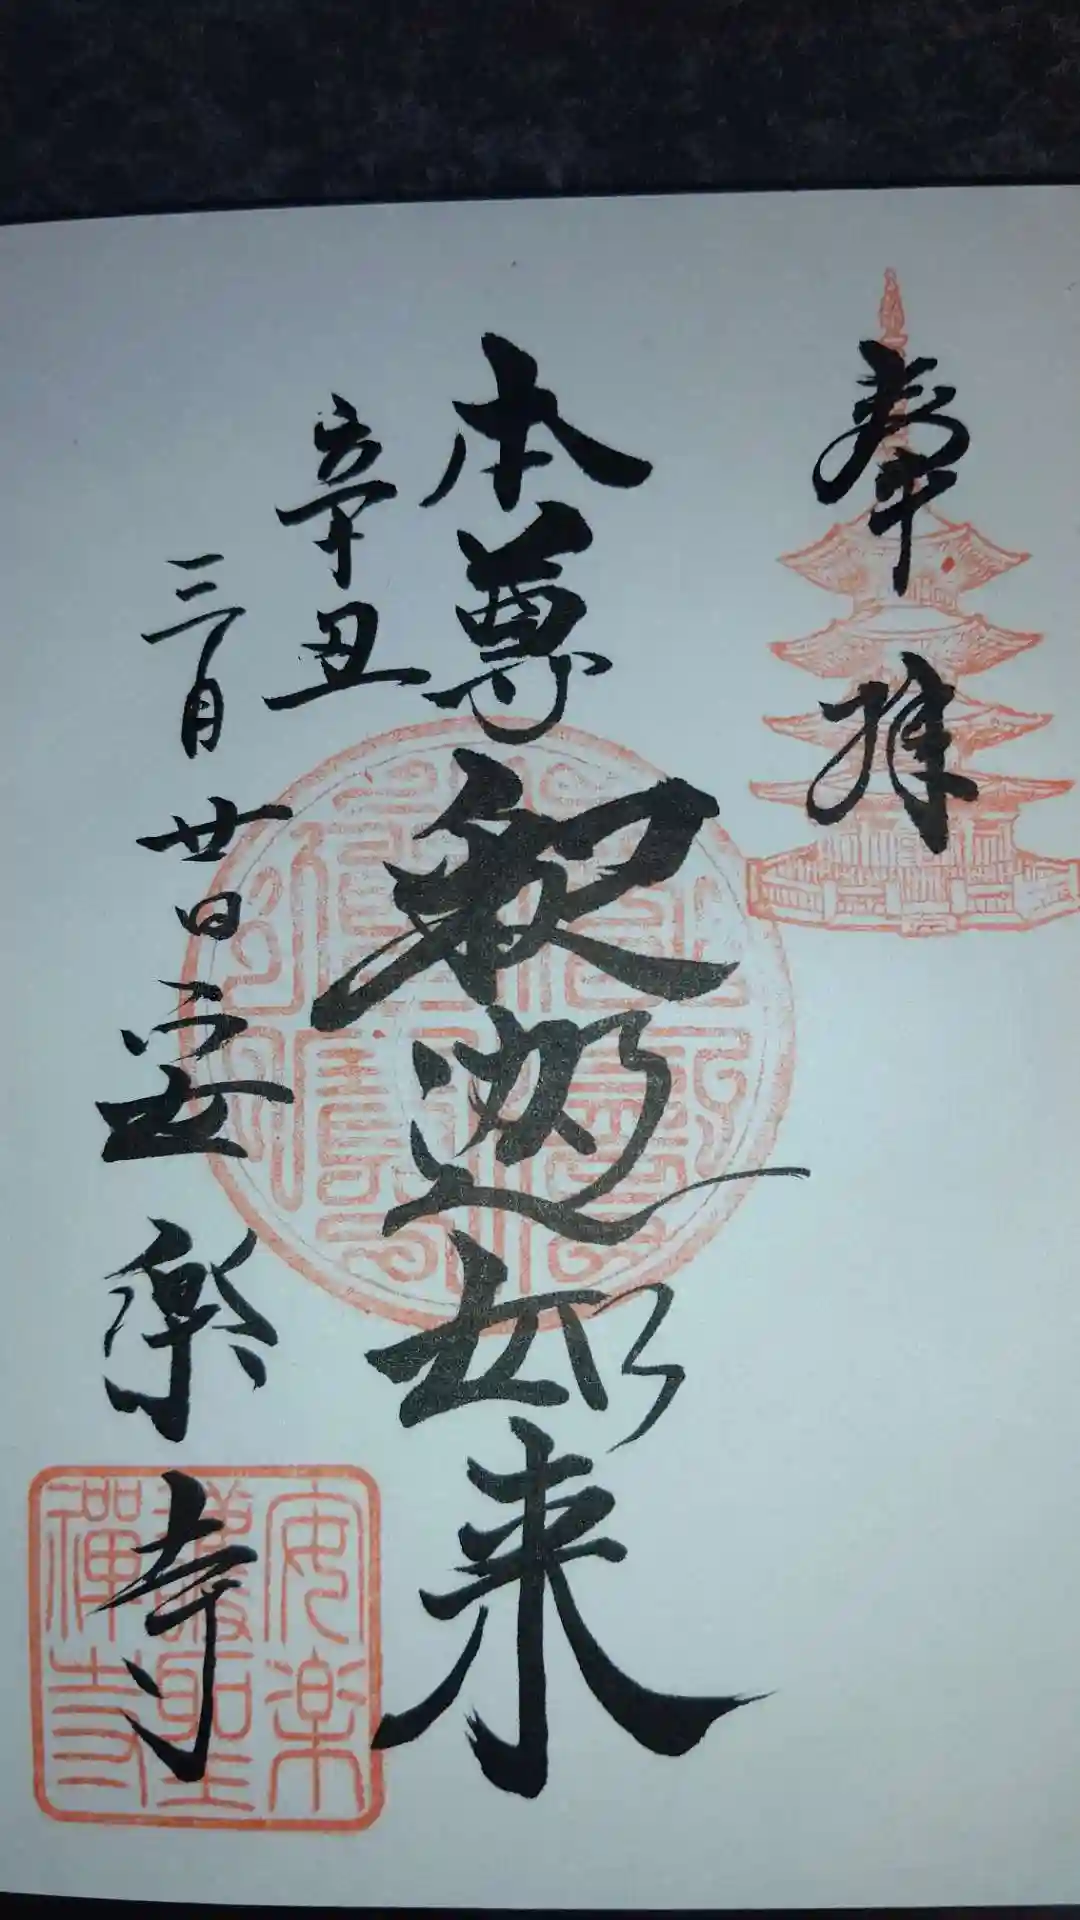 奉拝
本尊釈迦如来
辛丑
三月廿日安楽寺
安楽
護聖
禅寺